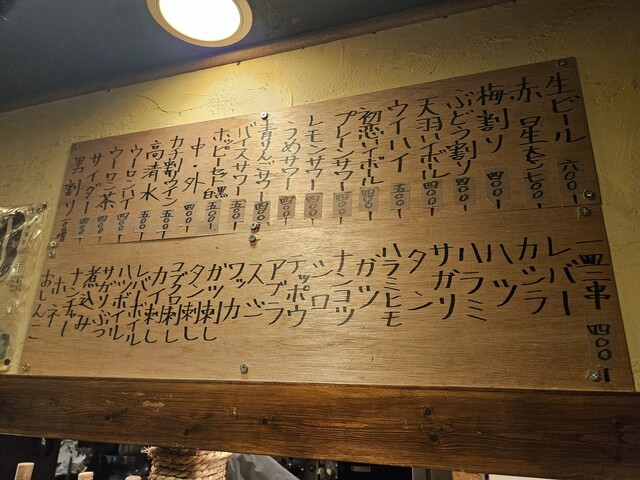 生ビール 六〇〇
赤星
梅割り 四〇〇
ぶどう割り 四〇〇
天羽ハイボール 四〇〇
ウイハイ 五〇〇
初恋ハイボール 四〇〇
プレーンサワー 四〇〇
レモンサワー 四〇〇
うめサワー 四〇〇
青りんごサワー 四〇〇
バイスサワー 五〇〇
ホッピーセット 白黒
中 外
カチ割りワイン 四〇〇
高清水 五〇〇
ウーロンハイ 四〇〇
ウーロン茶 四〇〇
サイダー 四〇〇
男割り
一皿 串 四〇〇
レバー
カシラ
ハツ
ハラミ
サガリ
タン
ハラミヒモ
ガツ
ナンコツ
シロ
テッポウ
アブラ
スジ
ワッカ
ガツ刺し
タン刺し
コブクロ刺し
カイ刺し
レバボイル
ハツボイル
サガリぶつ
煮込み
ナカチャー
ホネ
おしんこ